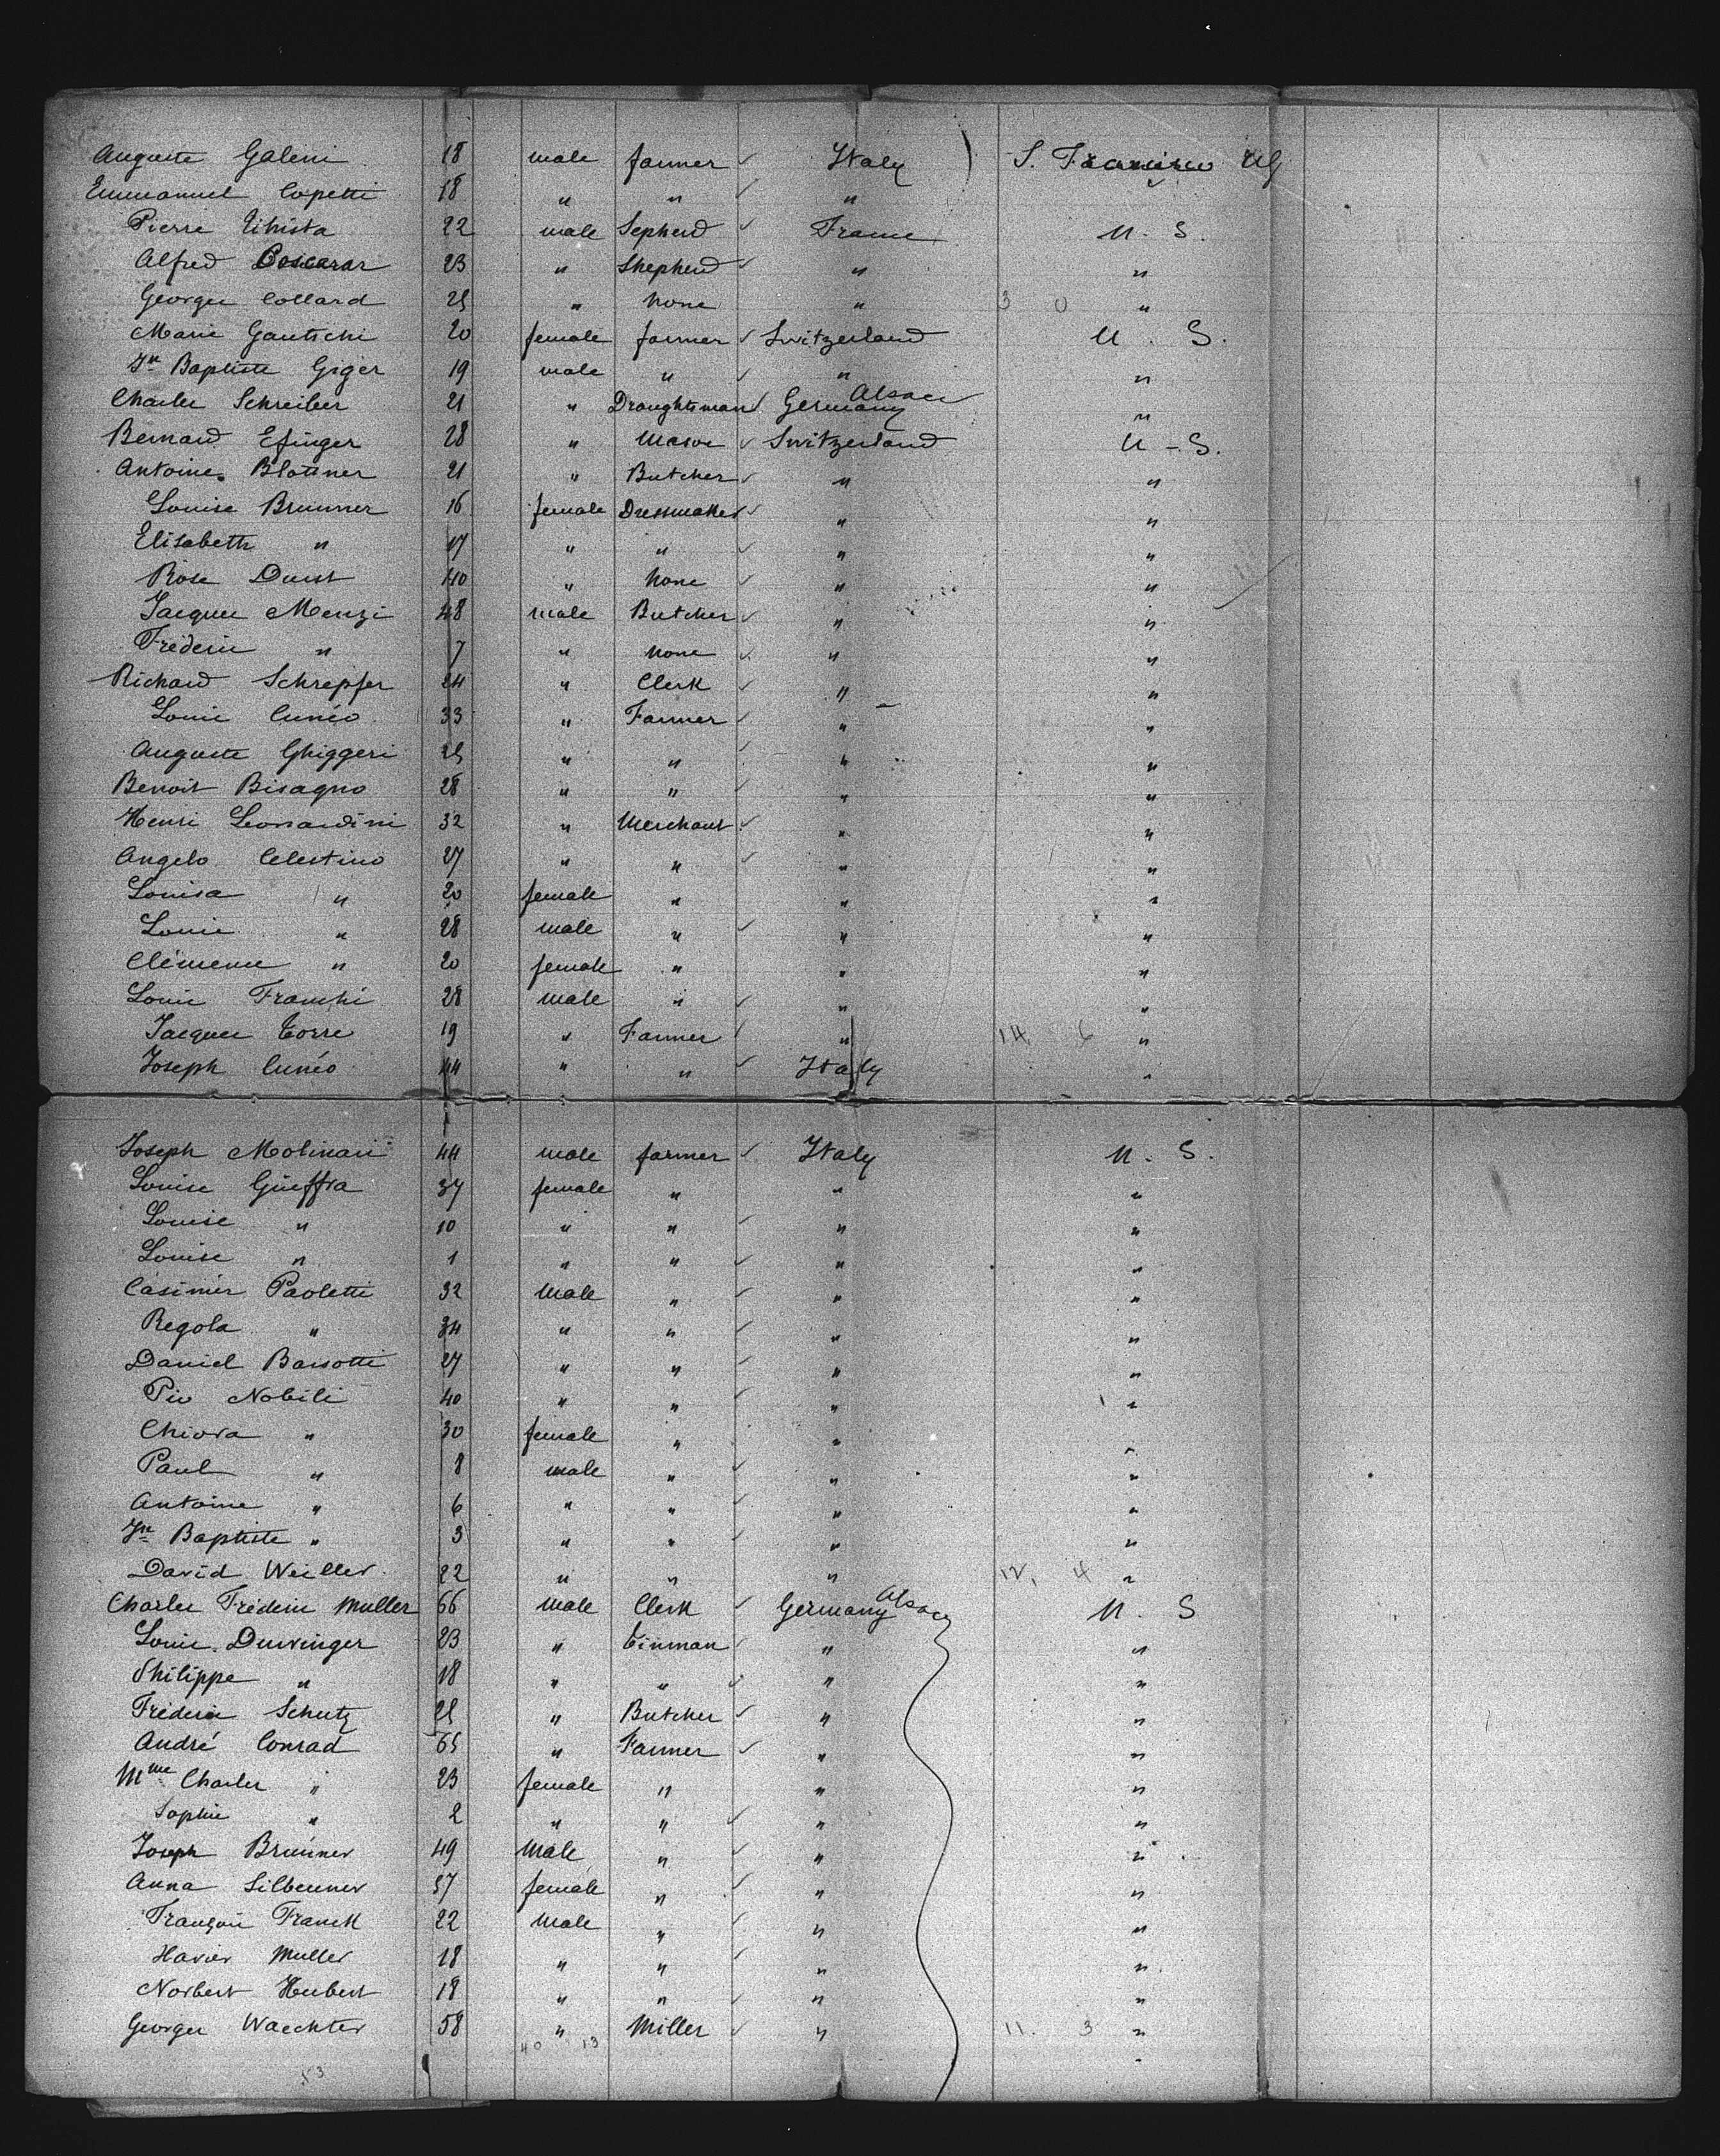 Auguste Galeni 18 male farmer ✓ Italy ) S. Francisco
Emmanuel Copetti 18 " " ✓ "
Pierre 22 male Sepherd ✓ France U. S.
Alfred 23 " Shepherd ✓ " "
Georges Collard 25 " none " 3 0 "
Marie Gautschi 20 female farmer ✓ Switzerland U. S.
Jn Baptiste Giger 19 male " ✓ " "
Charles Schreiber 21 " Draughtsman Germany Alsace "
Bernard Efinger 28 " Mason ✓ Switzerland U - S.
Antoine Blattner 21 " Butcher ✓ " "
Louise Brunner 16 female Dressmaker ✓ " "
Elisabeth " 17 " " ✓ " "
Rose Durst 40 " none ✓ " "
Jacques Menzi 48 male Butcher ✓ " "
Frédéric " 7 " none ✓ " "
Richard Schrepfer 24 " Clerk ✓ " "
Louis Cunéo 33 " Farmer ✓ " "
Auguste Ghiggeri 25 " " ✓ " "
Benoit Bisagno 28 " " ✓ " "
Henri Leonardini 32 " Merchant ✓ " "
Angelo Celestino 27 " " ✓ " "
Louisa " 20 female " " "
Louis " 28 male " ✓ " "
Clémence " 20 female " " "
Louis Franchi 28 male " ✓ " "
Jacques Torre 19 " Farmer ✓ " 14 6 "
Joseph Cunéo 44 " " ✓ Italy "
Joseph Molinari 44 male farmer ✓ Italy U. S.
Louise Giuffra 37 female " " "
Louise " 10 " " ✓ " "
Louise " 1 " " ✓ " "
Casimir Paoletti 32 Male " ✓ " "
Regola " 34 " " ✓ " "
Daniel Barsotti 27 " " ✓ " "
Pio Nobili 40 " " ✓ " "
Chiora " 30 female " " "
Paul " 8 male " ✓ " "
Antoine " 6 " " ✓ " "
Jn Baptiste " 3 " " ✓ " "
David Weiller 22 " " " 12, 4 "
Charles Frédéric Muller 66 Male Clerk ✓ Germany Alsace U. S
Louis Durvinger 23 " Tinman ✓ " "
Philippe " 18 " " ✓ " "
Frédéric Schutz 25 " Butcher ✓ " "
André Conrad 65 " Farmer ✓ " "
Mme Charles " 23 female " " "
Sophie " 2 " " ✓ " "
Joseph Brunner 49 Male " ✓ " "
Anna Silbenner 37 female " ✓ " "
François Franck 22 Male " ✓ " "
Havier Muller 18 " " ✓ " "
Norbert Hubert 18 " " ✓ " "
Georges Waechter 58 " Miller ✓ " 11. 3 "
40 13
53